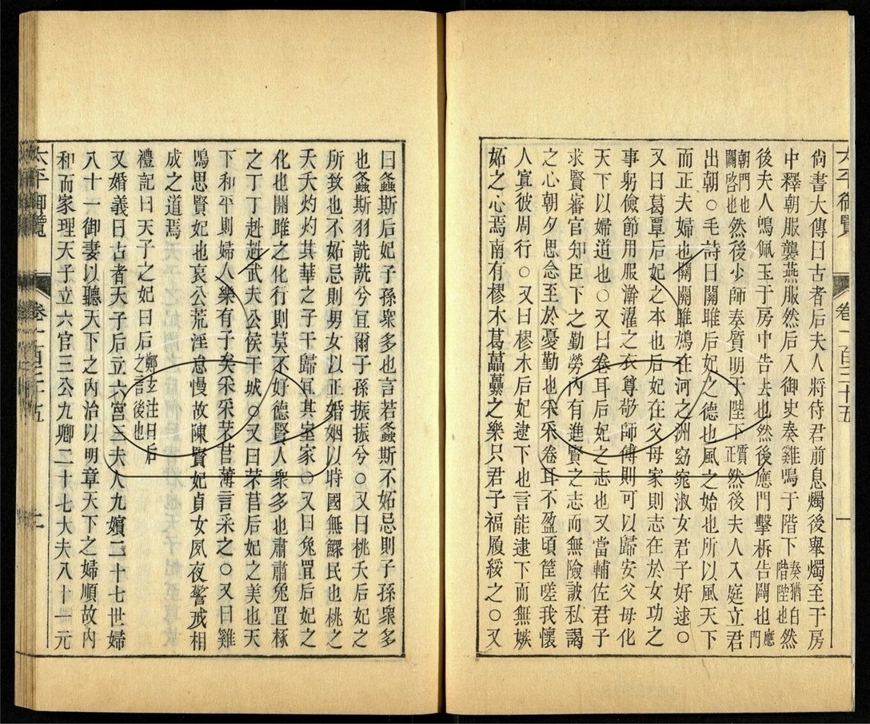 太平御覽
卷一百三十五
一
尚書大傳曰古者后夫人將侍君前息燭後舉燭至于房
中釋朝服襲燕服然后入御史奏雞鳴于階下奏猶白階陛也然
後夫人鳴佩玉于房中告去也然後應門擊柝告闢也應門
朝門也闢啟也然後少師奏質明于陛下質正然後夫人入庭立君
出朝○毛詩曰關雎后妃之德也風之始也所以風天下
而正夫婦也關關雎鳩在河之洲窈窕淑女君子好逑○
又曰葛覃后妃之本也后妃在父母家則志在於女功之
事躬儉節用服澣濯之衣尊敬師傅則可以歸安父母化
天下以婦道也○又曰卷耳后妃之志也又當輔佐君子
求賢審官知臣下之勤勞內有進賢之志而無險詖私謁
之心朝夕思念至於憂勤也采采卷耳不盈頃筐嗟我懷
人寘彼周行○又曰樛木后妃逮下也言能逮下而無嫉
妬之心焉南有樛木葛藟纍之樂只君子福履綏之○又
曰螽斯后妃子孫衆多也言若螽斯不妬忌則子孫衆多
也螽斯羽詵詵兮宜爾子孫振振兮○又曰桃夭后妃之
所致也不妬忌則男女以正婚姻以時國無鰥民也桃之
夭夭灼灼其華之子于歸宜其室家○又曰兔罝后妃之
化也關雎之化行則莫不好德賢人衆多也肅肅兔罝椓
之丁丁赳赳武夫公侯干城○又曰芣苢后妃之美也天
下和平則婦人樂有子矣采采芣苢薄言采之○又曰雞
鳴思賢妃也哀公荒淫怠慢故陳賢妃貞女夙夜警戒相
成之道焉
禮記曰天子之妃曰后鄭玄注曰后之言後也
又婚義曰古者天子后立六宮三夫人九嬪二十七世婦
八十一御妻以聽天下之內治以明章天下之婦順故內
和而家理天子立六官三公九卿二十七大夫八十一元
太平御覽
卷一百三十五